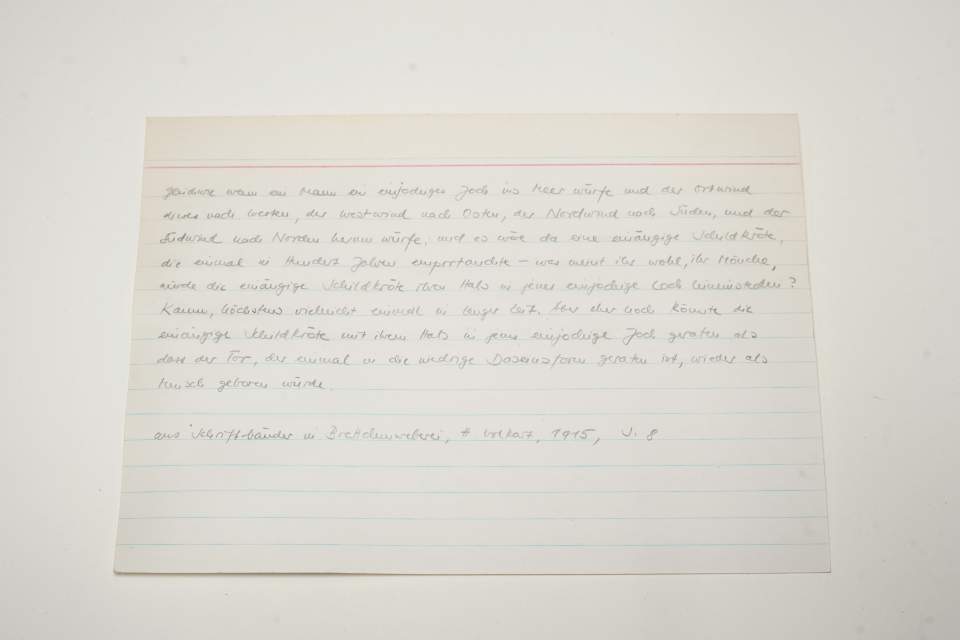 wenn ein Mann ein einjochiges Joch ins Meer würfe und der Ostwind
dieses nach Westen, der Westwind nach Osten, der Nordwind nach Süden, und der
Südwind nach Norden herum würfe, und es wär da eine einäugige Schildkröte,
die einmal in Hundert Jahren emportauchte – was meint ihr wohl, ihr Mönche,
würde die einäugige Schildkröte ihren Hals in jenes einjochige Loch hineinstecken?
Kaum, höchstens vielleicht einmal in langer Zeit. Aber eher noch könnte die
einäugige Schildkröte mit ihrem Hals in jenes einjochige Joch geraten als
dass der Tor, der einmal in die niedrige Daseinsform geraten ist, wieder als
Mensch geboren würde.
aus Schriftbänder in Brettchenweberei, 1915, S. 8